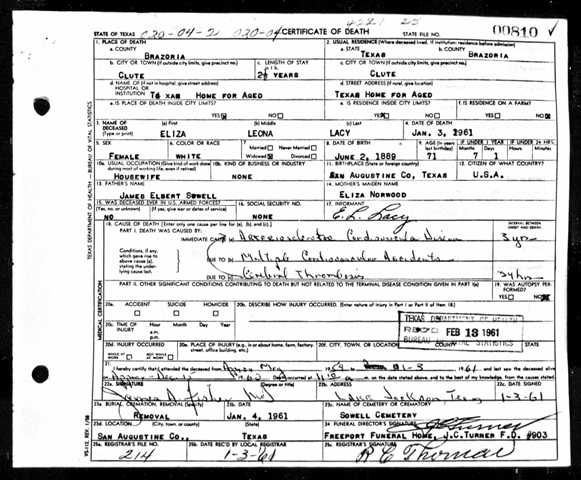 STATE OF TEXAS 020-04-2 020-04 CERTIFICATE OF DEATH STATE FILE NO. 00810
1. PLACE OF DEATH
a. COUNTY
BRAZORIA
2. USUAL RESIDENCE (Where deceased lived. If institution: residence before admission)
a. STATE TEXAS
b. COUNTY BRAZORIA
b. CITY OR TOWN (If outside city limits, give precinct no.)
CLUTE
c. LENGTH OF STAY
YEARS
c. CITY OR TOWN (If outside city limits, give precinct no.)
CLUTE
d. NAME OF (If not in hospital, give street address)
HOSPITAL OR
INSTITUTION TEXAS HOME FOR AGED
d. STREET ADDRESS (If rural, give location)
TEXAS HOME FOR AGED
e. IS PLACE OF DEATH INSIDE CITY LIMITS?
YES NO
e. IS RESIDENCE INSIDE CITY LIMITS?
YES NO
f. IS RESIDENCE ON A FARM?
YES NO
3. NAME OF DECEASED (Type or print)
(a) First ELIZA
(b) Middle LEONA
(c) Last LACY
4. DATE OF DEATH
JAN. 3, 1961
5. SEX
FEMALE
6. COLOR OR RACE
WHITE
7. Married Never Married
Widowed Divorced
8. DATE OF BIRTH
JUNE 2, 1889
9. AGE (In years last birthday)
71
IF UNDER 1 YEAR
7 1
10a. USUAL OCCUPATION (Give kind of work done during most of working life, even if retired)
HOUSEWIFE
10b. KIND OF BUSINESS OR INDUSTRY
NONE
11. BIRTHPLACE (State or foreign country)
SAN AUGUSTINE CO, TEXAS
12. CITIZEN OF WHAT COUNTRY?
U.S.A.
13. FATHER'S NAME
JAMES ELBERT SOWELL
14. MOTHER'S MAIDEN NAME
ELIZA NORWOOD
15. WAS DECEASED EVER IN U.S. ARMED FORCES?
(Yes, no, or unknown) (If yes, give war or dates of service)
NO
16. SOCIAL SECURITY NO.
NONE
17. INFORMANT
E. L. Lacy
18. CAUSE OF DEATH (Enter only one cause per line for (a), (b), and (c).)
INTERVAL BETWEEN ONSET AND DEATH
PART I. DEATH WAS CAUSED BY:
IMMEDIATE CAUSE (a) Arteriosclerotic Cardiovascular Disease 3 yrs
Conditions, if any, which gave rise to above cause (a), stating the underlying cause last.
DUE TO (b) Multiple Cerebrovascular Accidents
DUE TO (c) Cerebral Thrombosis 24 hrs
PART II. OTHER SIGNIFICANT CONDITIONS CONTRIBUTING TO DEATH BUT NOT RELATED TO THE TERMINAL DISEASE CONDITION GIVEN IN PART I(a)
19. WAS AUTOPSY PERFORMED?
YES NO
20a. ACCIDENT SUICIDE HOMICIDE
20b. DESCRIBE HOW INJURY OCCURRED. (Enter nature of injury in Part I or Part II of item 18.)
20c. TIME OF INJURY Hour Month Day Year
a.m.
p.m.
TEXAS DEPARTMENT OF HEALTH
REC'D FEB 13 1961
BUREAU OF VITAL STATISTICS
20d. INJURY OCCURRED
WHILE AT WORK NOT WHILE AT WORK
20e. PLACE OF INJURY (e.g., in or about home, farm, factory, street, office building, etc.)
20f. CITY, TOWN, OR LOCATION COUNTY STATE
21. I hereby certify that I attended the deceased from
1-3 1961
m. on the date stated above, and to the best of my knowledge, from the causes stated.
22a. SIGNATURE
(Degree or title)
22b. ADDRESS
Lake Jackson Texas
22c. DATE SIGNED
1-3-61
23a. BURIAL, CREMATION, REMOVAL (Specify)
REMOVAL
23b. DATE
JAN. 4, 1961
23c. NAME OF CEMETERY OR CREMATORY
SOWELL CEMETERY
23d. LOCATION (City, town, or county) (State)
SAN AUGUSTINE CO., TEXAS
24. FUNERAL DIRECTOR'S SIGNATURE
FREEPORT FUNERAL HOME, J.C.TURNER F.D. #903
25a. REGISTRAR'S FILE NO.
214
25b. DATE REC'D BY LOCAL REGISTRAR
1-3-61
25c. REGISTRAR'S SIGNATURE
R C Thomas
TEXAS DEPARTMENT OF HEALTH—BUREAU OF VITAL STATISTICS
MEDICAL CERTIFICATION
VS-112, REV. 1/58